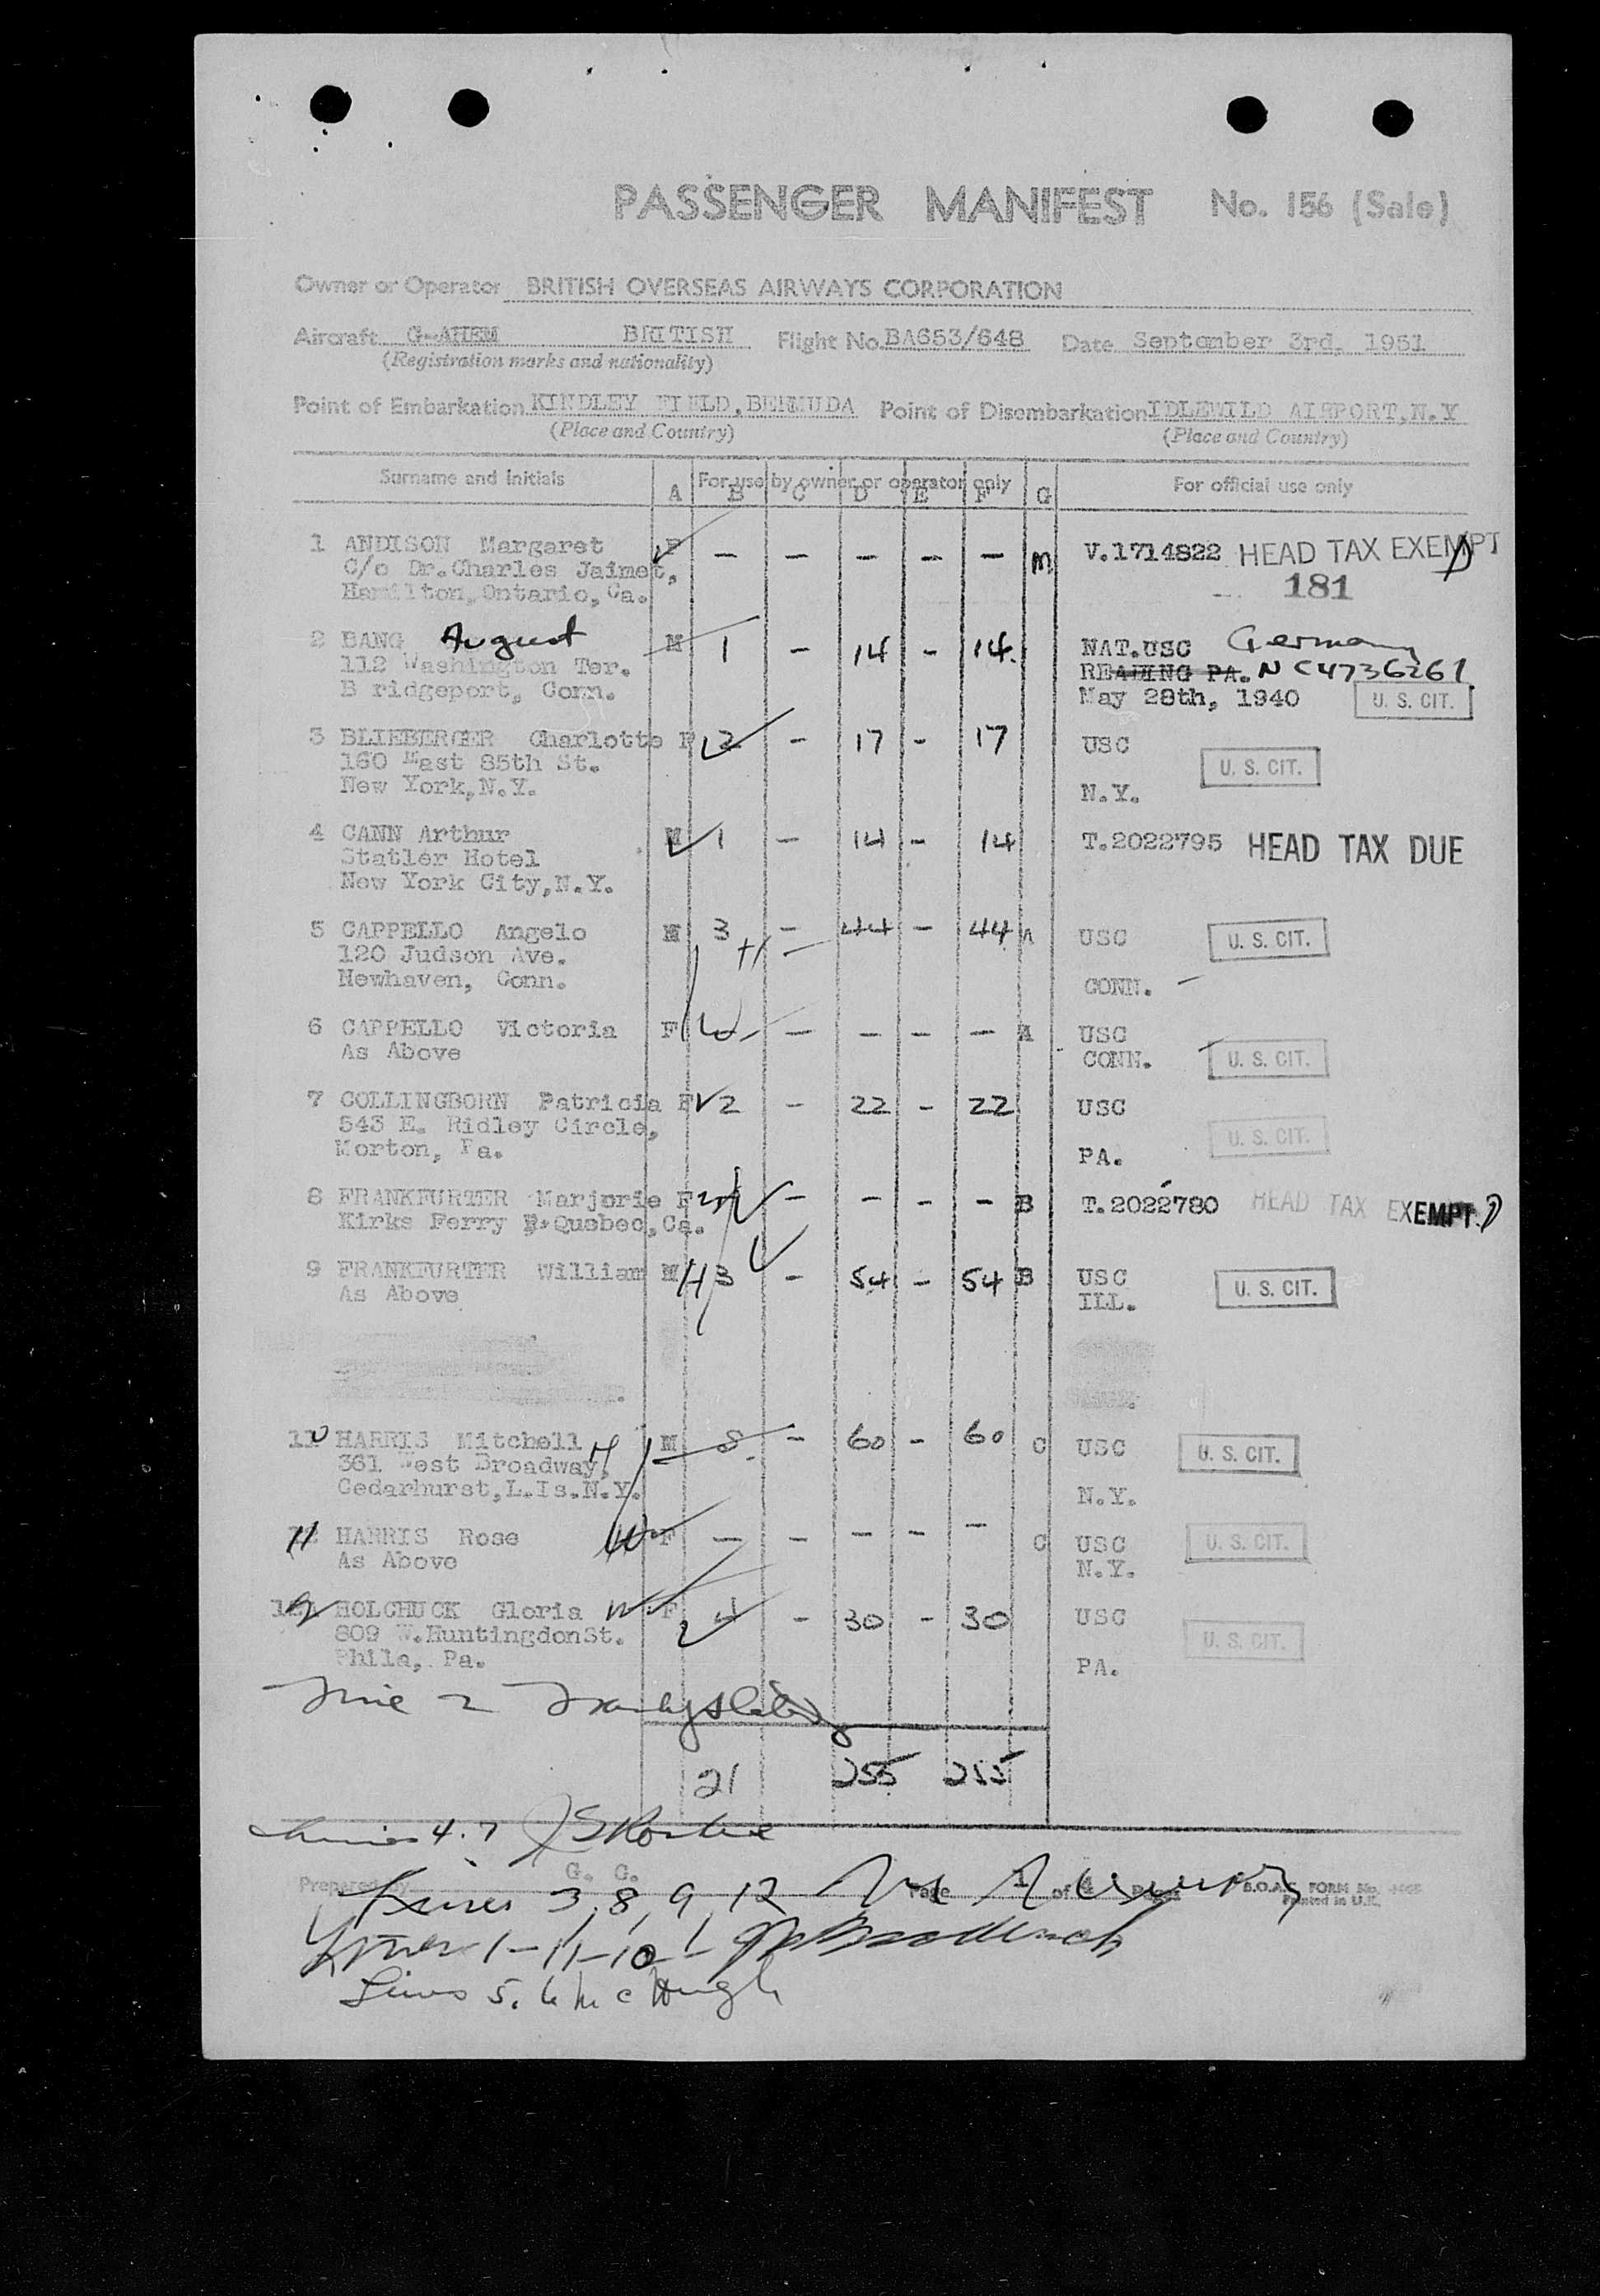 PASSENGER MANIFEST No. 156 (Sale)
Owner or Operator BRITISH OVERSEAS AIRWAYS CORPORATION
Aircraft G-AHEM BRITISH Flight No. BA653/648 Date September 3rd, 1951
(Registration marks and nationality)
Point of Embarkation KINDLEY FIELD, BERMUDA Point of Disembarkation IDLEWILD AIRPORT, N.Y
(Place and Country) (Place and Country)
Surname and initials For use by owner or operator only For official use only
A B C D E F G
1 ANDISON Margaret F — — — — — M V.1714822 HEAD TAX EXEMPT
C/o Dr. Charles Jaimet,
181
Hamilton, Ontario, Ca.
2 BANG August M 1 - 14 - 14. NAT.USC Germany
112 Washington Ter. READING PA. N C4736261
B ridgeport, Conn. May 28th, 1940 U. S. CIT.
3 BLIEBERGER Charlotte F 2 - 17 - 17 USC
160 East 85th St. U. S. CIT.
New York, N.Y. N.Y.
4 CANN Arthur M 1 - 14 - 14 T.2022795 HEAD TAX DUE
Statler Hotel
New York City, N.Y.
5 CAPPELLO Angelo M 3 - 44 - 44 A USC U. S. CIT.
120 Judson Ave. H
Newhaven, Conn. CONN.
6 CAPPELLO Victoria F W - - - - A USC
As Above CONN. U. S. CIT.
7 COLLINGBORN Patricia F 2 - 22 - 22 USC
543 E. Ridley Circle, U. S. CIT.
Morton, Pa. PA.
8 FRANKFURTER Marjorie F - - - - B T.2022780 HEAD TAX EXEMPT
Kirks Ferry P. Quebec, Ca.
9 FRANKFURTER William M H 3 - 54 - 54 B USC U. S. CIT.
As Above ILL.
10 HARRIS Mitchell H M 8. - 60 - 60 C USC U. S. CIT.
361 West Broadway,
Cedarhurst, L.Is.N.Y. N.Y.
11 HARRIS Rose W F — - — - — C USC U. S. CIT.
As Above N.Y.
12 HOLCHUCK Gloria F 4 - 30 - 30 USC
809 W.HuntingdonSt. U. S. CIT.
Phila, Pa. PA.
21 255 255
4.7
G. G.
Prepared by Page 1 of 4 Pages B.O.A.C. FORM No.
Printed in U.K.
Lines 3, 8, 9, 12
Lines 1-11-10-
Lines 5. 6 McHugh